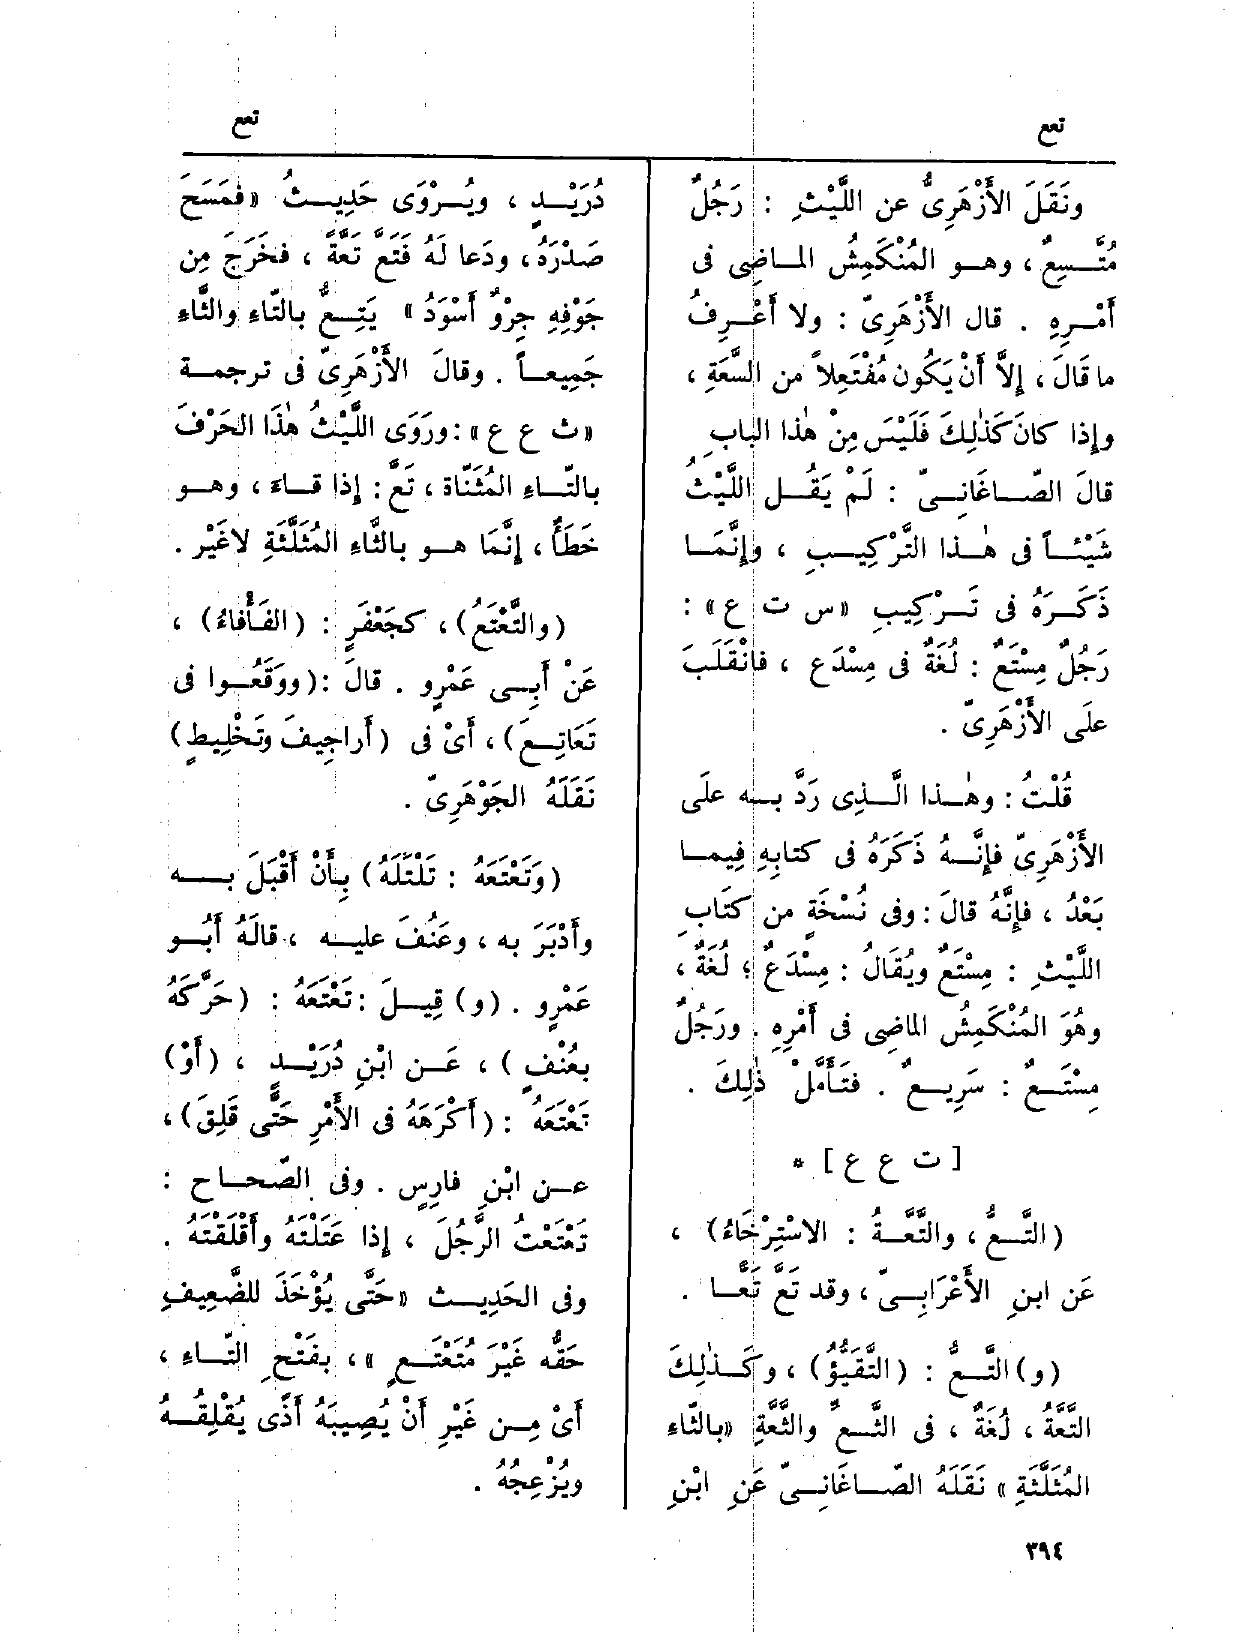 تعع
تعع
ونَقَلَ الأَزْهَرِىُّ عن اللَّيْثِ : رَجُلٌ
مُتَّسِعٌ ، وهو المُنْكَمِشُ الماضِى فى
أَمْرِهِ . قال الأَزْهَرِىّ : ولا أَعْرِفُ
ما قالَ ، إلاَّ أَنْ يَكُون مُفْتَعِلاً من السَّعَةِ ،
وإِذا كانَ كَذٰلِكَ فَلَيْسَ مِنْ هٰذا البابِ
قالَ الصّاغَانِىّ : لَمْ يَقُل اللَّيْثُ
شَيْئاً فى هٰذا التَّرْكِيبِ ، وإِنَّمَا
ذَكَرَهُ فى تَرْكِيبِ «س ت ع» :
رَجُلٌ مِسْتَعٌ : لُغَةٌ فى مِسْدَع ، فانْقَلَبَ
علَى الأَزْهَرِىّ .
قُلْتُ : وهٰذا الَّذِى رَدَّ به علَى
الأَزْهَرِىّ فإِنَّهُ ذَكَرَهُ فى كتابِهِ فِيما
بَعْدُ ، فإِنَّهُ قالَ : وفى نُسْخَةٍ من كتَابِ
اللَّيْثِ : مِسْتَعٌ ويُقَالُ : مِسْدَعٌ ؛ لُغَةٌ ،
وهُوَ المُنْكَمِشُ الماضِى فى أَمْرِهِ . ورَجُلٌ
مِسْتَعٌ : سَرِيعٌ . فتَأَمَّلْ ذٰلِكَ .
[ ت ع ع ] *
(التَّعُّ ، والتَّعَّةُ : الاسْتِرْخَاءُ) ،
عَن ابنِ الأَعْرَابِىّ ، وقد تَعَّ تَعًّا .
(و) التَّعُّ : (التَّقَيُّؤُ) ، وكَذٰلِكَ
التَّعَّةُ ، لُغَةٌ ، فى الثَّعِّ والثَّعَّةِ «بالثّاءِ
المُثَلَّثَةِ» نَقَلَهُ الصّاغَانِىّ عَنِ ابْنِ
دُرَيْدٍ ، ويُرْوَى حَدِيثُ «فمَسَحَ
صَدْرَهُ ، ودَعا لَهُ فَتَعَّ تَعَّةً ، فخَرَجَ مِن
جَوْفِهِ جِرْوٌ أَسْوَدُ» يَتِعُّ بالتّاءِ والثَّاءِ
جَمِيعاً . وقالَ الأَزْهَرِىّ فى ترجمة
«ث ع ع» : ورَوَى اللَّيْثُ هٰذَا الحَرْفَ
بالتّاءِ المُثَنّاة ، تَعَّ : إِذا قاءَ ، وهو
خَطَأٌ ، إِنَّمَا هو بالثَّاءِ المُثَلَّثَةِ لاغَيْر .
(والتَّعْتَعُ) ، كجَعْفَرٍ : (الفَأْفَاءُ) ،
عَنْ أَبِى عَمْرٍو . قالَ : (ووَقَعُوا فى
تَعَاتِعَ) ، أَىْ فى (أَراجِيفَ وتَخْلِيطٍ)
نَقَلَهُ الجَوْهَرِىّ .
(وَتَعْتَعَهُ : تَلْتَلَهُ) بِأَنْ أَقْبَلَ به
وأَدْبَرَ به ، وعَنُفَ عليه ، قالَهُ أَبُو
عَمْرٍو . (و) قِيلَ : تَعْتَعَهُ : (حَرَّكَهُ
بعُنْفٍ) ، عَن ابْنِ دُرَيْد ، (أَوْ)
تَعْتَعَهُ : (أَكْرَهَهُ فى الأَمْرِ حَتَّى قَلِقَ) ،
عن ابْنِ فارِسٍ . وفى الصّحاح :
تَعْتَعْتُ الرَّجُلَ ، إِذا عَتَلْتَهُ وأَقْلَقْتَهُ .
وفى الحَدِيث «حَتَّى يُؤْخَذَ للضَّعِيفِ
حَقُّه غَيْرَ مُتَعْتَعٍ» ، بفَتْحِ التّاءِ ،
أَىْ مِن غَيْرِ أَنْ يُصِيبَهُ أَذًى يُقْلِقُهُ
ويُزْعِجُهُ .
٣٩٤